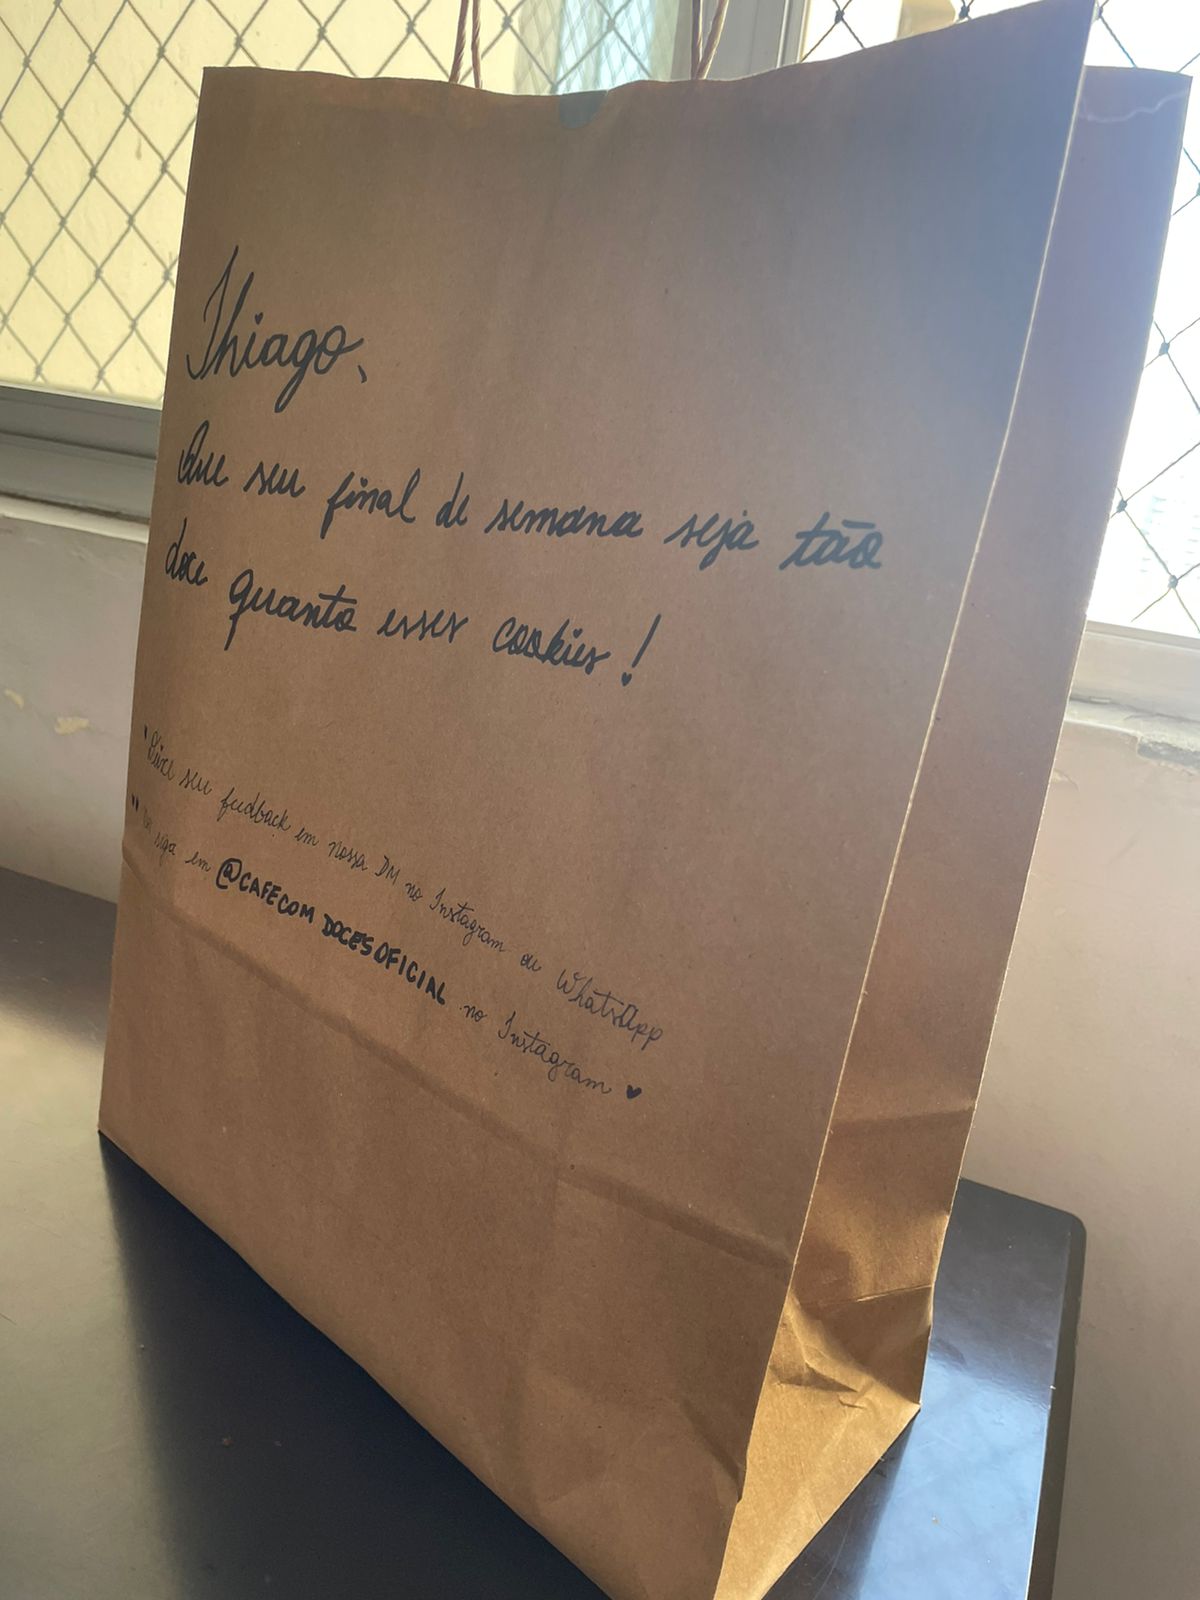 Thiago,
Que seu final de semana seja tão
doce quanto esses cookies!
"Deixe seu feedback em nossa DM no Instagram ou WhatsApp
" siga em @CAFECOMDOCESOFICIAL no Instagram ♥